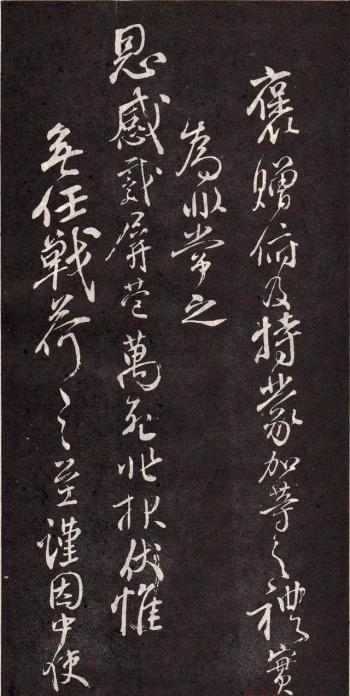 褒贈俯及特蒙加等之禮實
為非常之
恩感戴屏營萬死非報伏惟
無任戰荷之至謹因中使